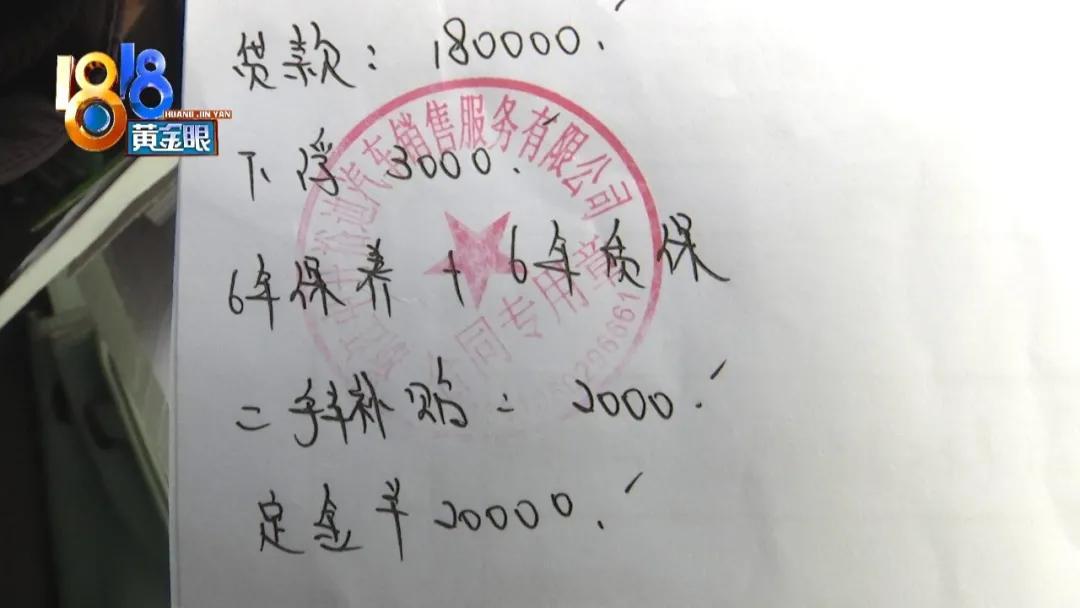 1818
HUANG JIN YAN
黄金眼
贷款：180000.
下浮 3000.
6年保养 + 6年质保
二手补贴 = 2000.
定金￥20000.
迪汽车销售服务有限公司
合同专用章